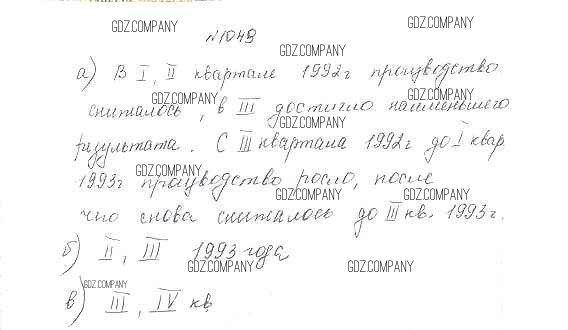 №1049
а) В I, II квартале 1992г производство
снималось, в III достигло наименьшего
результата. С III квартала 1992г до I квар.
1993г производство росло, после
чего снова снималось до III кв. 1993г.
б) II, III 1993 года
в) III, IV кв.
GDZ.COMPANY
GDZ.COMPANY
GDZ.COMPANY
GDZ.COMPANY
GDZ.COMPANY
GDZ.COMPANY
GDZ.COMPANY
GDZ.COMPANY
GDZ.COMPANY
GDZ.COMPANY
GDZ.COMPANY
GDZ.COMPANY